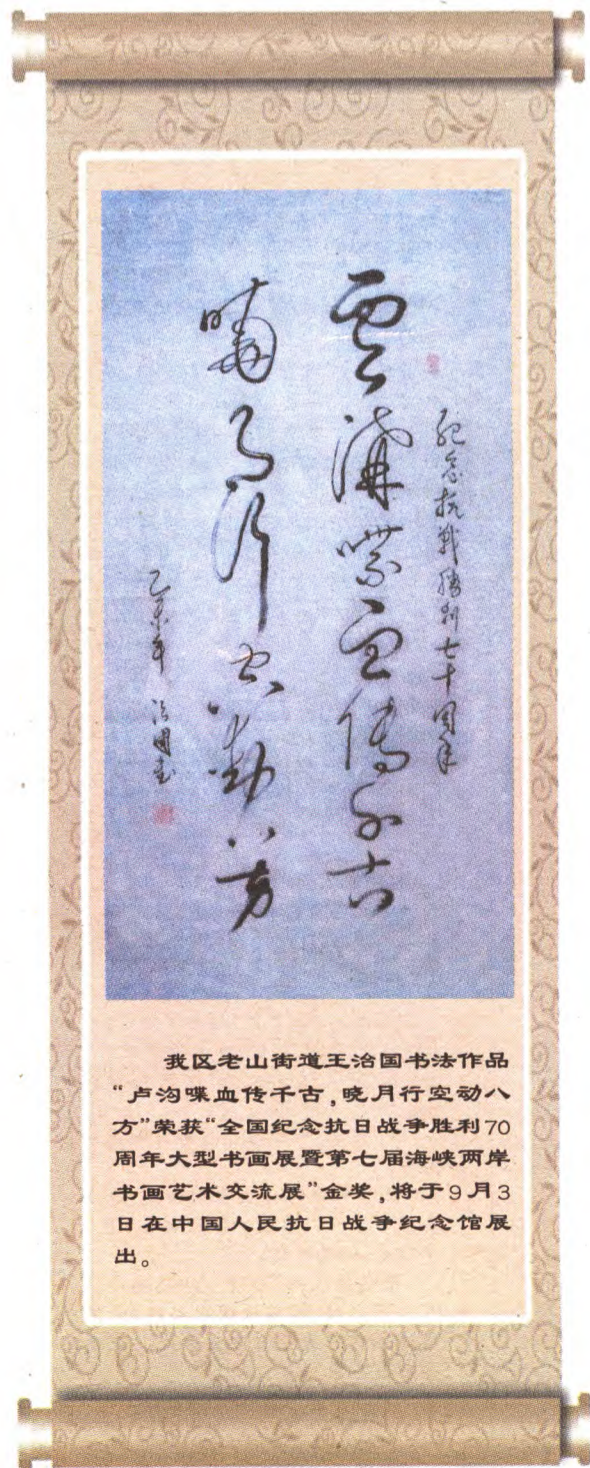 纪念抗战胜利七十周年
卢沟喋血传千古
晓月行空动八方
乙未年 治国书
我区老山街道王治国书法作品
“卢沟喋血传千古，晓月行空动八
方”荣获“全国纪念抗日战争胜利70
周年大型书画展暨第七届海峡两岸
书画艺术交流展”金奖，将于9月3
日在中国人民抗日战争纪念馆展
出。